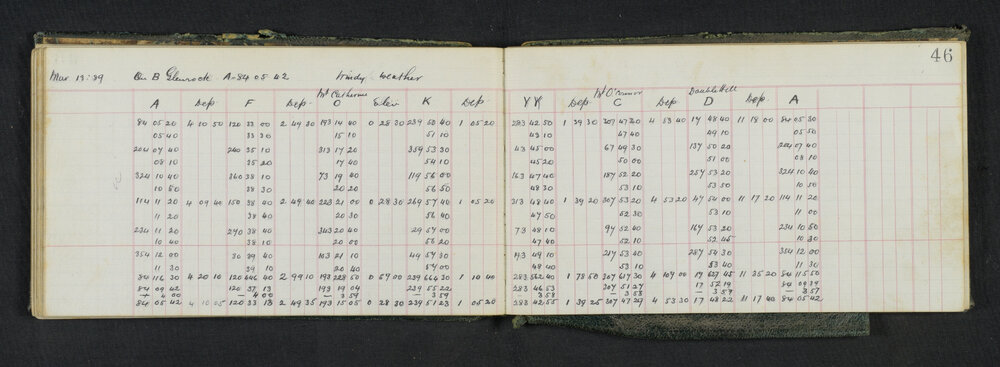 46
Mar 13.39 On B Glenrock A-84 05 42 Windy weather
Mt Catherine Mt O'Connor Double Hill
A Dep F Dep O Elev K Dep YK Dep C Dep D Dep A
84 05 20 4 10 50 120 33 00 2 49 30 193 14 40 0 28 30 239 50 40 1 05 20 283 42 50 1 39 30 307 47 20 4 53 40 17 48 40 11 18 00 84 05 30
05 40 33 30 15 10 51 10 43 10 47 40 49 10 05 50
204 07 40 240 35 10 313 17 20 359 53 30 43 45 00 67 49 30 137 50 20 204 07 40
08 10 35 20 17 40 54 10 45 20 50 00 51 00 08 10
324 10 40 360 38 10 73 19 40 119 56 00 163 47 40 187 52 20 257 53 20 324 10 40
10 50 38 30 20 20 56 50 48 30 53 10 53 50 10 50
114 11 20 4 09 40 150 38 40 2 49 40 223 21 00 0 28 30 269 57 40 1 05 20 313 48 40 1 39 20 307 53 20 4 53 20 47 54 00 11 17 20 114 11 20
11 20 38 40 20 30 56 40 47 50 52 30 53 10 11 00
234 11 20 270 38 40 343 20 40 29 57 00 73 48 10 97 52 40 167 53 20 234 10 50
10 40 38 10 20 00 56 20 47 40 52 10 52 45 10 30
354 12 00 30 39 40 103 21 10 49 57 30 193 49 10 217 53 40 287 54 30 354 12 00
11 30 39 10 20 40 57 00 48 40 53 10 53 40 11 30
84 116 30 4 20 10 120 446 40 2 99 10 193 228 50 0 57 00 239 666 30 1 10 40 283 562 40 1 78 50 307 617 30 4 109 00 17 627 45 11 35 20 84 115 50
84 09 42 120 37 13 193 19 04 239 55 22 283 46 53 307 51 27 17 52 19 84 09 39
- 4 00 - 4 00 - 3 59 - 3 59 3 58 - 3 58 - 3 57 - 3 57
84 05 42 4 10 05 120 33 13 2 49 35 193 15 05 0 28 30 239 51 23 1 05 20 283 42 55 1 39 25 307 47 29 4 53 30 17 48 22 11 17 40 84 05 42